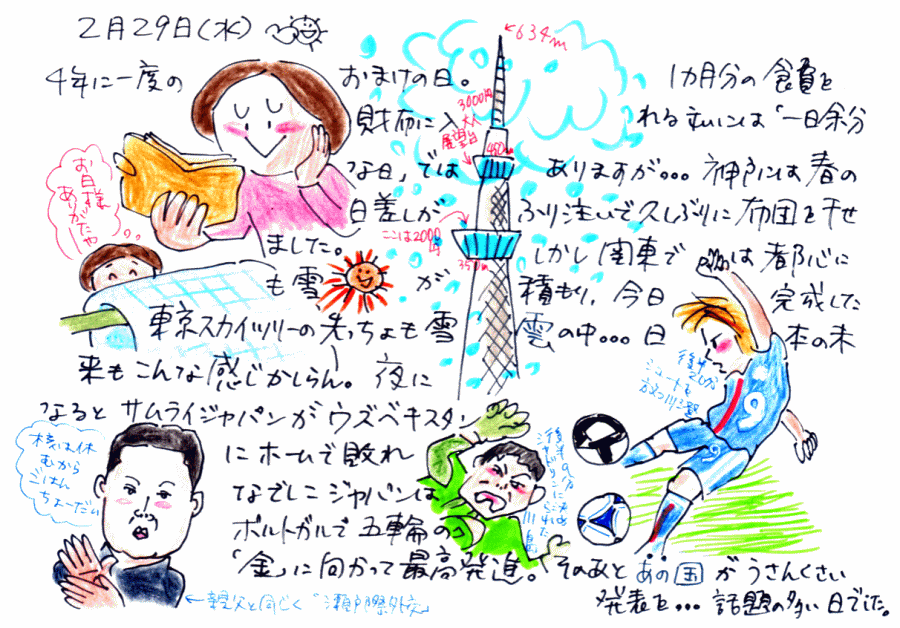 2月29日(水)
4年に一度の おまけの日。 1カ月分の食費を
財布に入れる身には「一日余分
な日」では ありますが…神戸には春の
日差しが ふり注いで久しぶりに布団を干せ
ました。 しかし関東では都心に
も雪が 積もり、今日 完成した
東京スカイツリーの先っちょも雪雲の中…日本の未
来もこんな感じかしらん。夜に
なるとサムライジャパンがウズベキスタン
にホームで敗れ
なでしこジャパンは
ポルトガルで五輪の
「金」に向かって最高発進。そのあとあの国がうさんくさい
発表を…話題の多い日でした。
お日様
ありがたや
634m
3000円
大人
展望台
450m
ここは2000円
350m
後半
シュートを
9
9
後半9分
核は休
むから
ごはん
ちょーだい
←親父と同じく"瀬戸際外交"